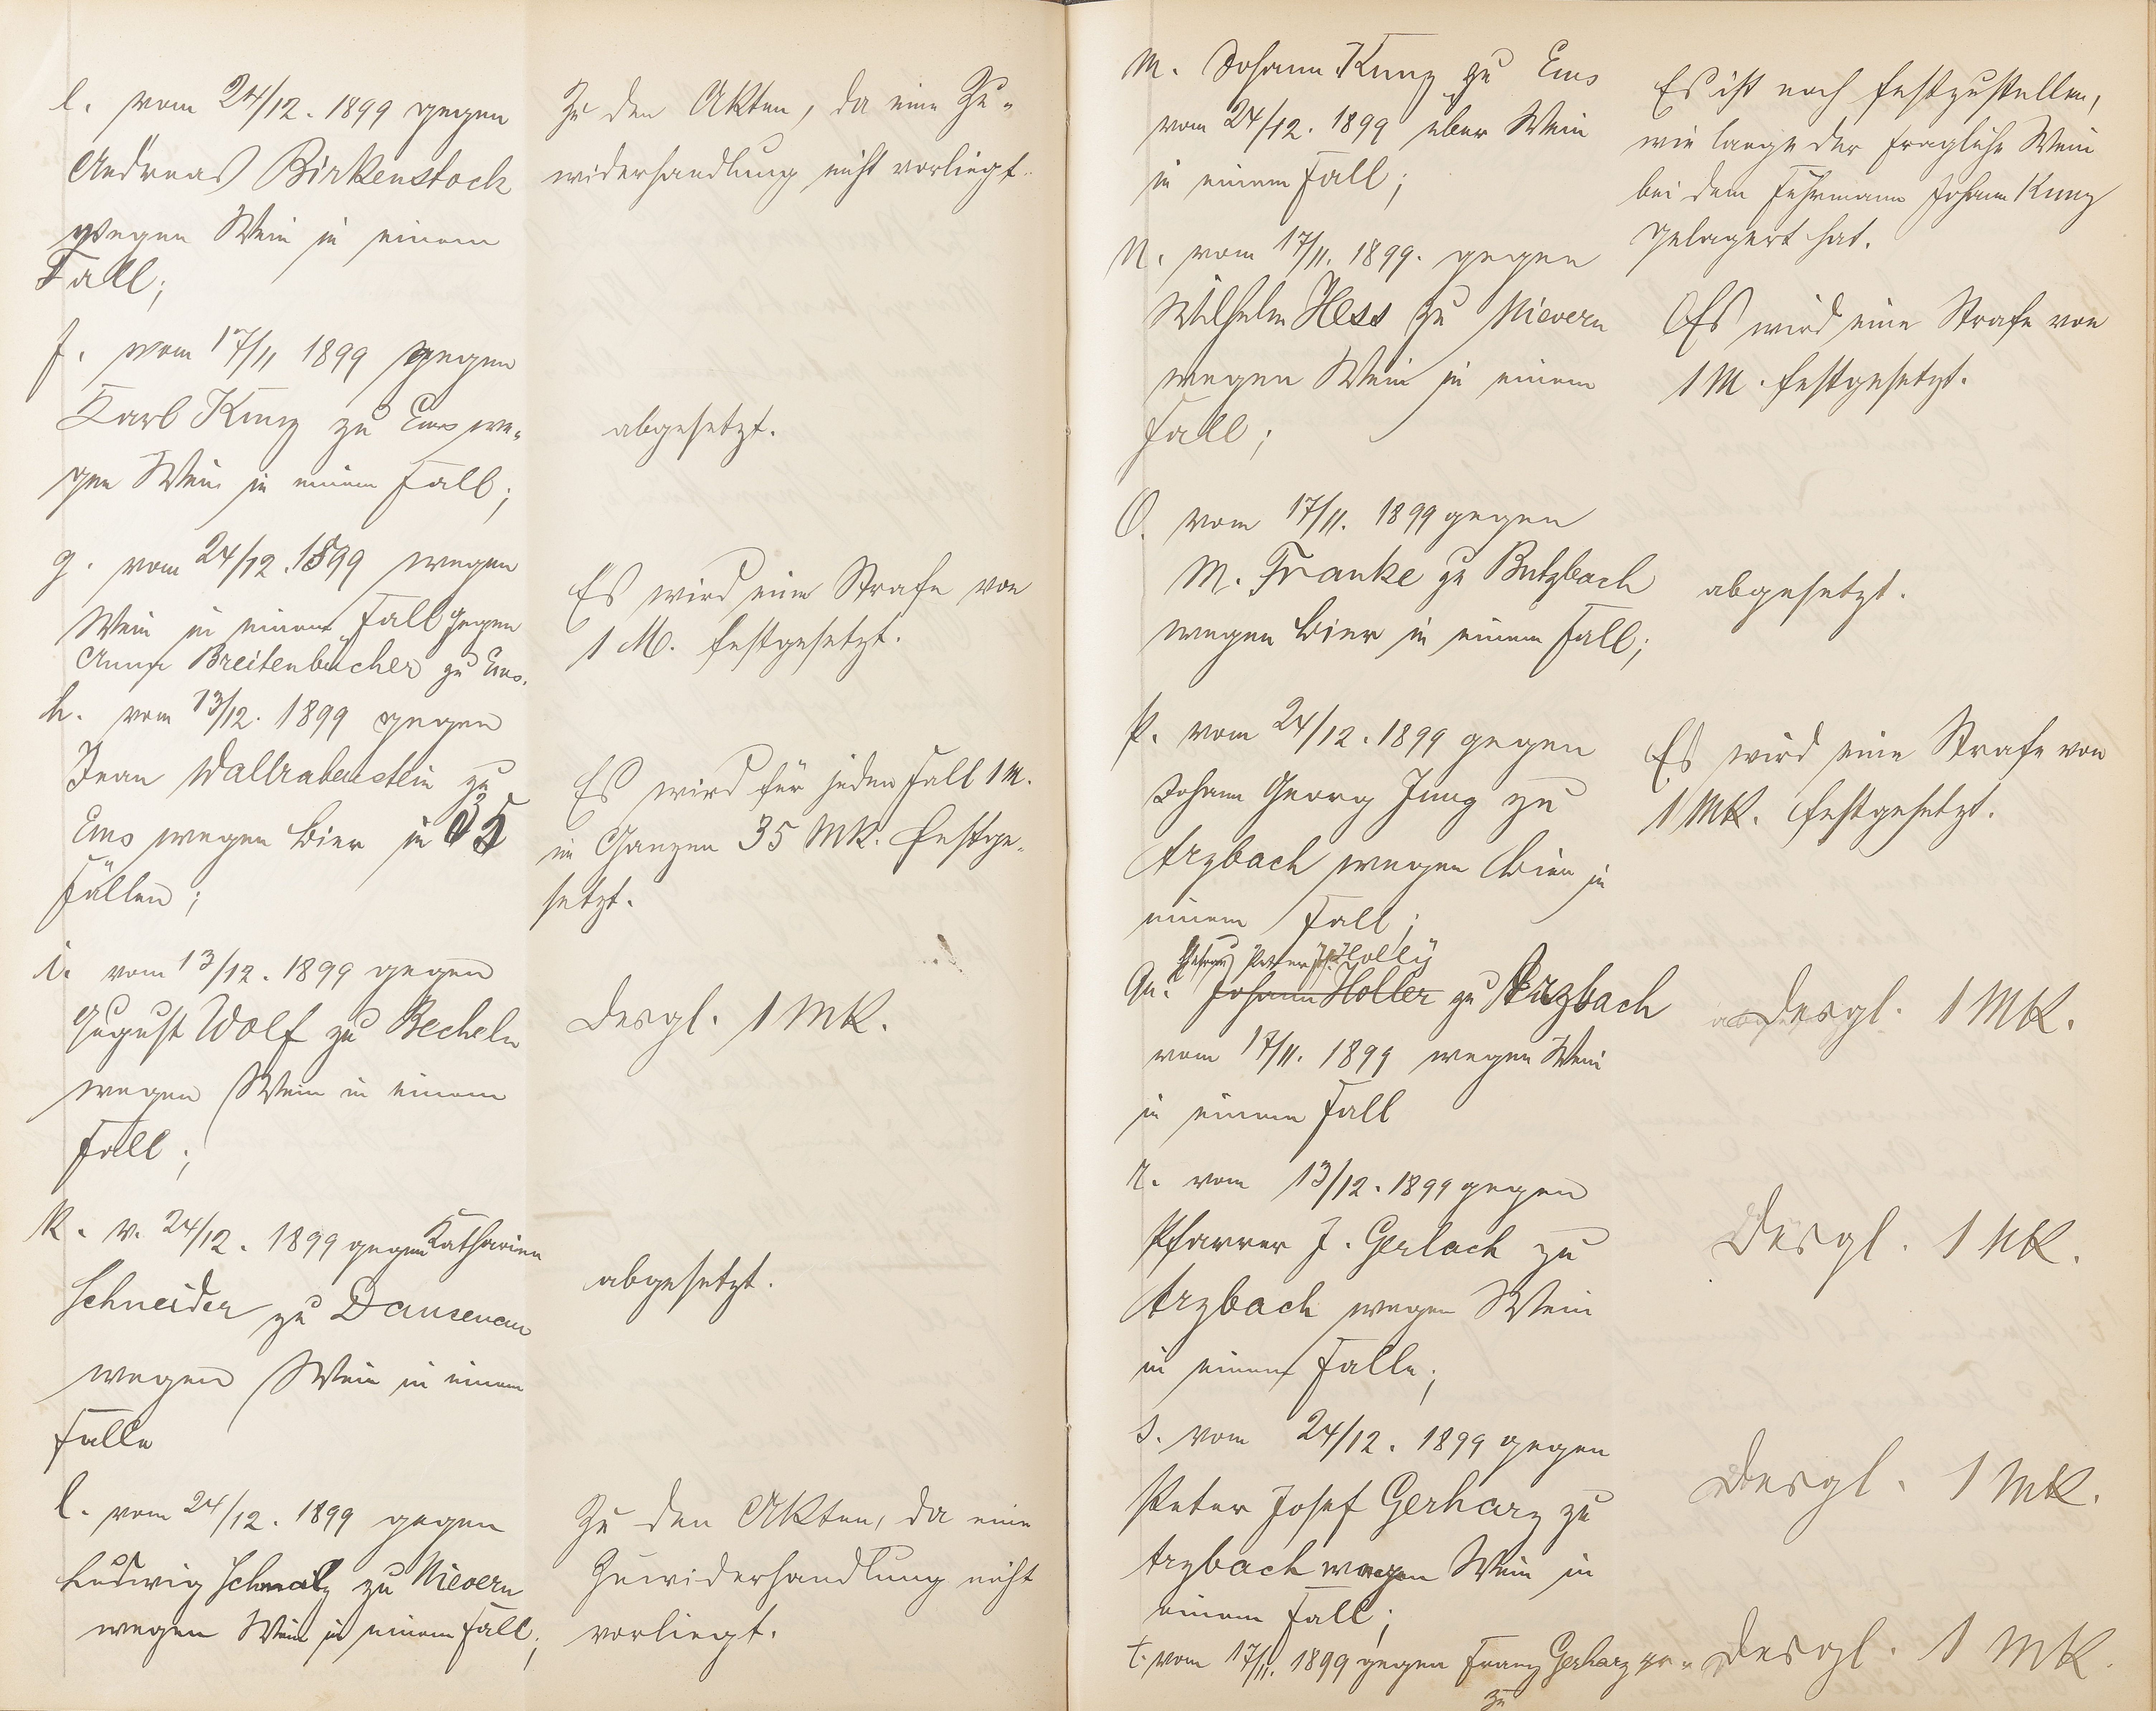 l. vom 24/12. 1899 gegen
Andreas Birkenstock
wegen Wein in einem
Fall;
Zu den Akten, da eine Zu-
widerhandlung nicht vorliegt.
f. vom 17/11 1899 gegen
Karl Kunz zu Ems we-
gen Wein in einem Fall;
abgesetzt.
g. vom 24/12. 1899 wegen
Wein in einem Fall gegen
Anna Breitenbücher zu Ems.
Es wird eine Strafe von
1 M. festgesetzt.
h. vom 13/12. 1899 gegen
Jean Wallrabenstein zu
Ems wegen Bier in 35
Fällen;
Es wird für jeden Fall 1 M.
im Ganzen 35 Mk. festge-
setzt.
i. vom 13/12. 1899 gegen
August Wolf zu Becheln
wegen Wein in einem
Fall;
Desgl. 1 Mk.
k. v. 24/12. 1899 gegen Katharina
Schneider zu Dausenau
wegen Wein in einem
Falle
abgesetzt.
l. vom 24/12. 1899 gegen
Ludwig Schmalz zu Nievern
wegen Wein in einem Fall;
Zu den Akten, da eine
Zuwiderhandlung nicht
vorliegt.
m. Johann Kunz zu Ems
vom 24/12. 1899 über Wein
in einem Fall;
Es ist noch festzustellen,
wie lange der fragliche Wein
bei dem Fuhrmann Johann Kunz
gelagert hat.
n. vom 17/11. 1899. gegen
Wilhelm Hess zu Nievern
wegen Wein in einem
Fall;
Es wird eine Strafe von
1 M. festgesetzt.
O. vom 17/11. 1899 gegen
M. Franke zu Butzbach
wegen Bier in einem Fall;
abgesetzt.
p. vom 24/12. 1899 gegen
Johann Georg Jung zu
Arzbach wegen Bier in
einem Fall;
Es wird eine Strafe von
1 Mk. festgesetzt.
Peter Jos. Holly
Qu. Johann Holler zu Arzbach
vom 17/11. 1899 wegen Wein
in einem Fall
Desgl. 1 Mk.
r. vom 13/12. 1899 gegen
Pfarrer J. Gerlach zu
Arzbach wegen Wein
in einem Falle;
Desgl. 1 Mk.
s. vom 24/12. 1899 gegen
Peter Josef Gerharz zu
Arzbach wegen Wein in
einem Fall;
Desgl. 1 Mk.
t. vom 17/11. 1899 gegen Franz Gerharz
zu
Desgl. 1 Mk.